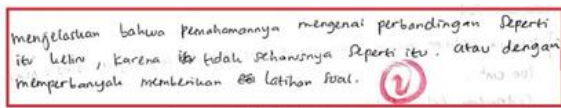 menjelaskan bahwa pemahamannya mengenai perbandingan seperti
itu keliru, karena itu tidak seharusnya seperti itu. atau dengan
memperbanyak memberikan latihan soal.
2